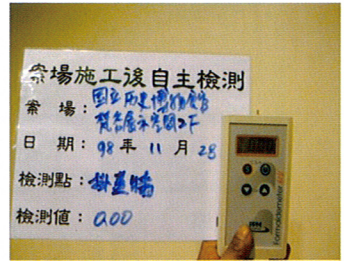 案場施工後自主檢測
案 場：國立歷史博物館
展示空間2F
日 期：98 年 11 月 28
檢測點：掛畫牆
檢測值：0.00
0.00
Formaldemeter